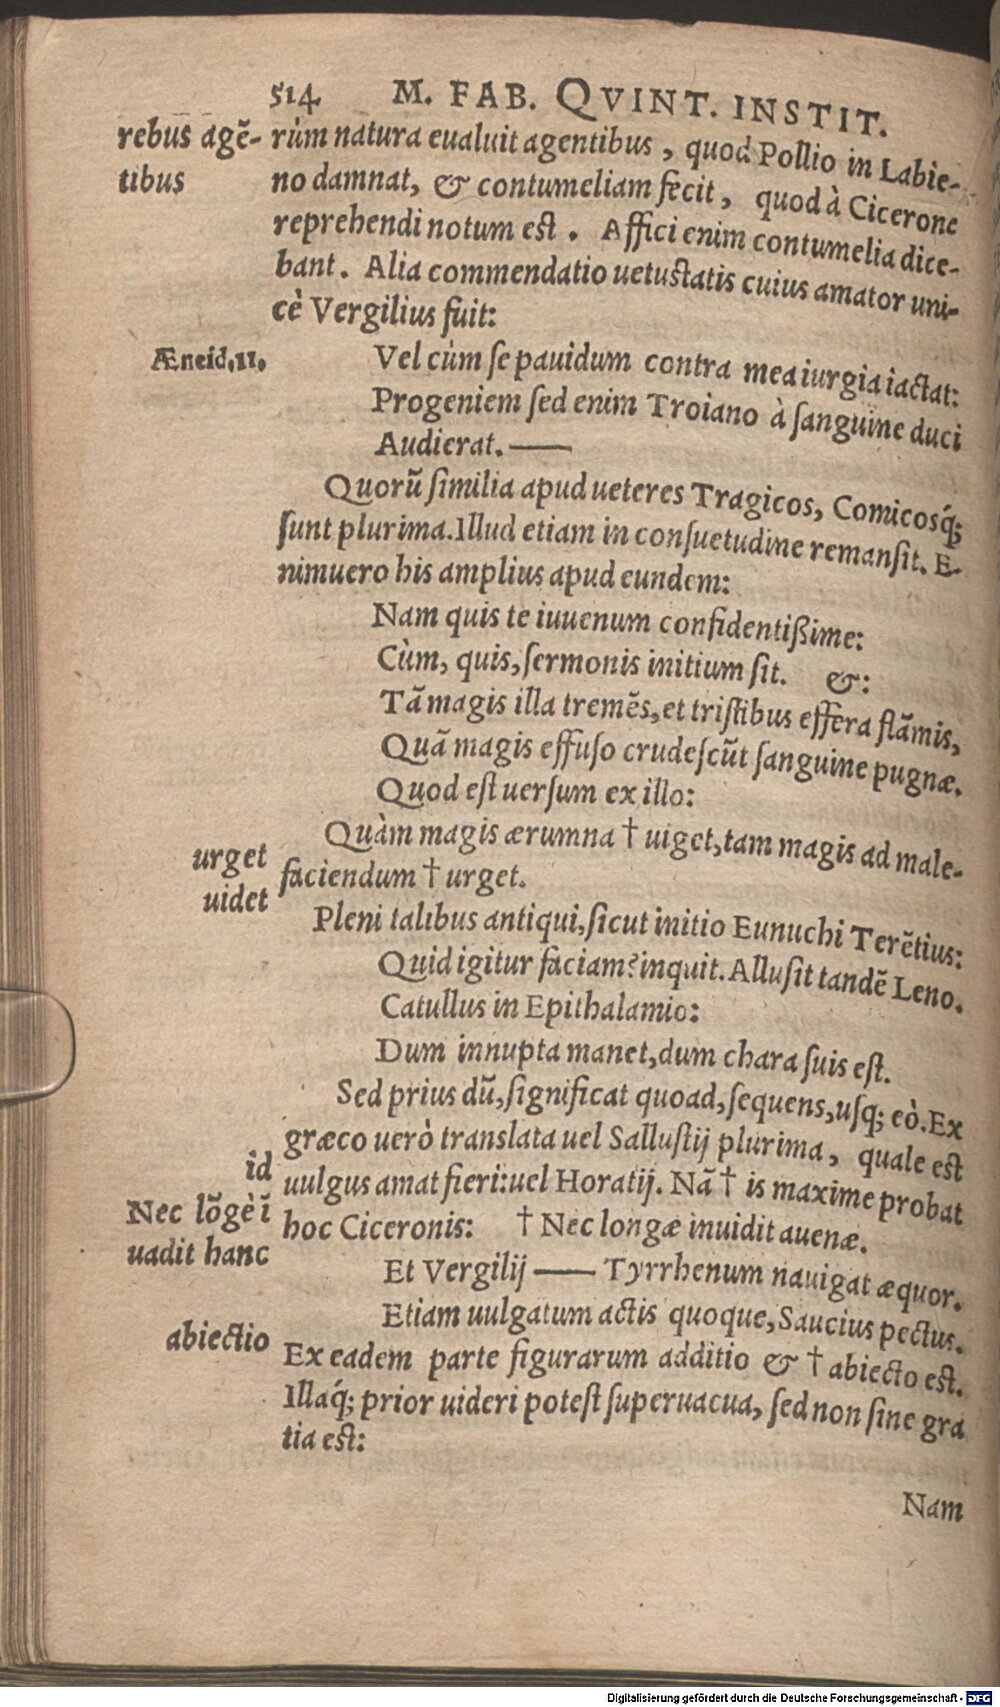 514 M. FAB. QVINT. INSTIT.
rebus agē-
tibus
rùm natura eualuit agentibus, quod Pollio in Labie-
no damnat, & contumeliam fecit, quod à Cicerone
reprehendi notum est. Affici enim contumelia dice-
bant. Alia commendatio uetustatis cuius amator uni-
cè Vergilius fuit:
Æneid.11.
Vel cùm se pauidum contra mea iurgia iactat:
Progeniem sed enim Troiano à sanguine duci
Audierat. —
Quorũ similia apud ueteres Tragicos, Comicosq́;
sunt plurima. Illud etiam in consuetudine remansit. E-
nimuero his amplius apud eundem:
Nam quis te iuuenum confidentißime:
Cùm, quis, sermonis initium sit. &:
Tã magis illa tremẽs, et tristibus effera flãmis,
Quã magis effuso crudescũt sanguine pugnæ.
Quod est uersum ex illo:
Quàm magis ærumna † uiget, tam magis ad male-
urget
uidet
faciendum † urget.
Pleni talibus antiqui, sicut initio Eunuchi Terẽtius:
Quid igitur faciam? inquit. Allusit tandẽ Leno.
Catullus in Epithalamio:
Dum innupta manet, dum chara suis est.
Sed prius dũ, significat quoad, sequens, usq; eò. Ex
græco uerò translata uel Sallustij plurima, quale est
id
uulgus amat fieri: uel Horatij. Nã † is maxime probat
Nec lõgè ĩ
uadit hanc
hoc Ciceronis: † Nec longæ inuidit auenæ.
Et Vergilij — Tyrrhenum nauigat æquor.
Etiam uulgatum actis quoque, Saucius pectus.
abiectio
Ex eadem parte figurarum additio & † abiecto est.
Illaq́; prior uideri potest superuacua, sed non sine gra
tia est:
Nam
Digitalisierung gefördert durch die Deutsche Forschungsgemeinschaft - DFG